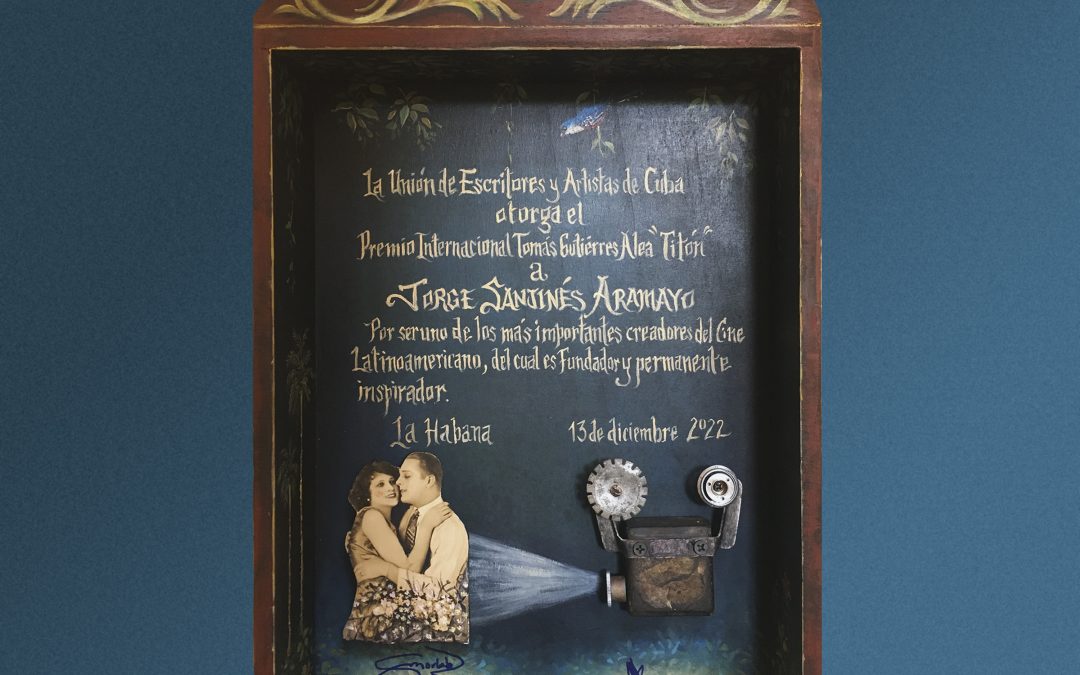 La Unión de Escritores y Artistas de Cuba
otorga el
Premio Internacional Tomás Gutiérres Alea "Titón"
a
JORGE SANJINÉS ARAMAYO
Por ser uno de los más importantes creadores del Cine
Latinoamericano, del cual es Fundador y permanente
inspirador.
La Habana 13 de diciembre 2022